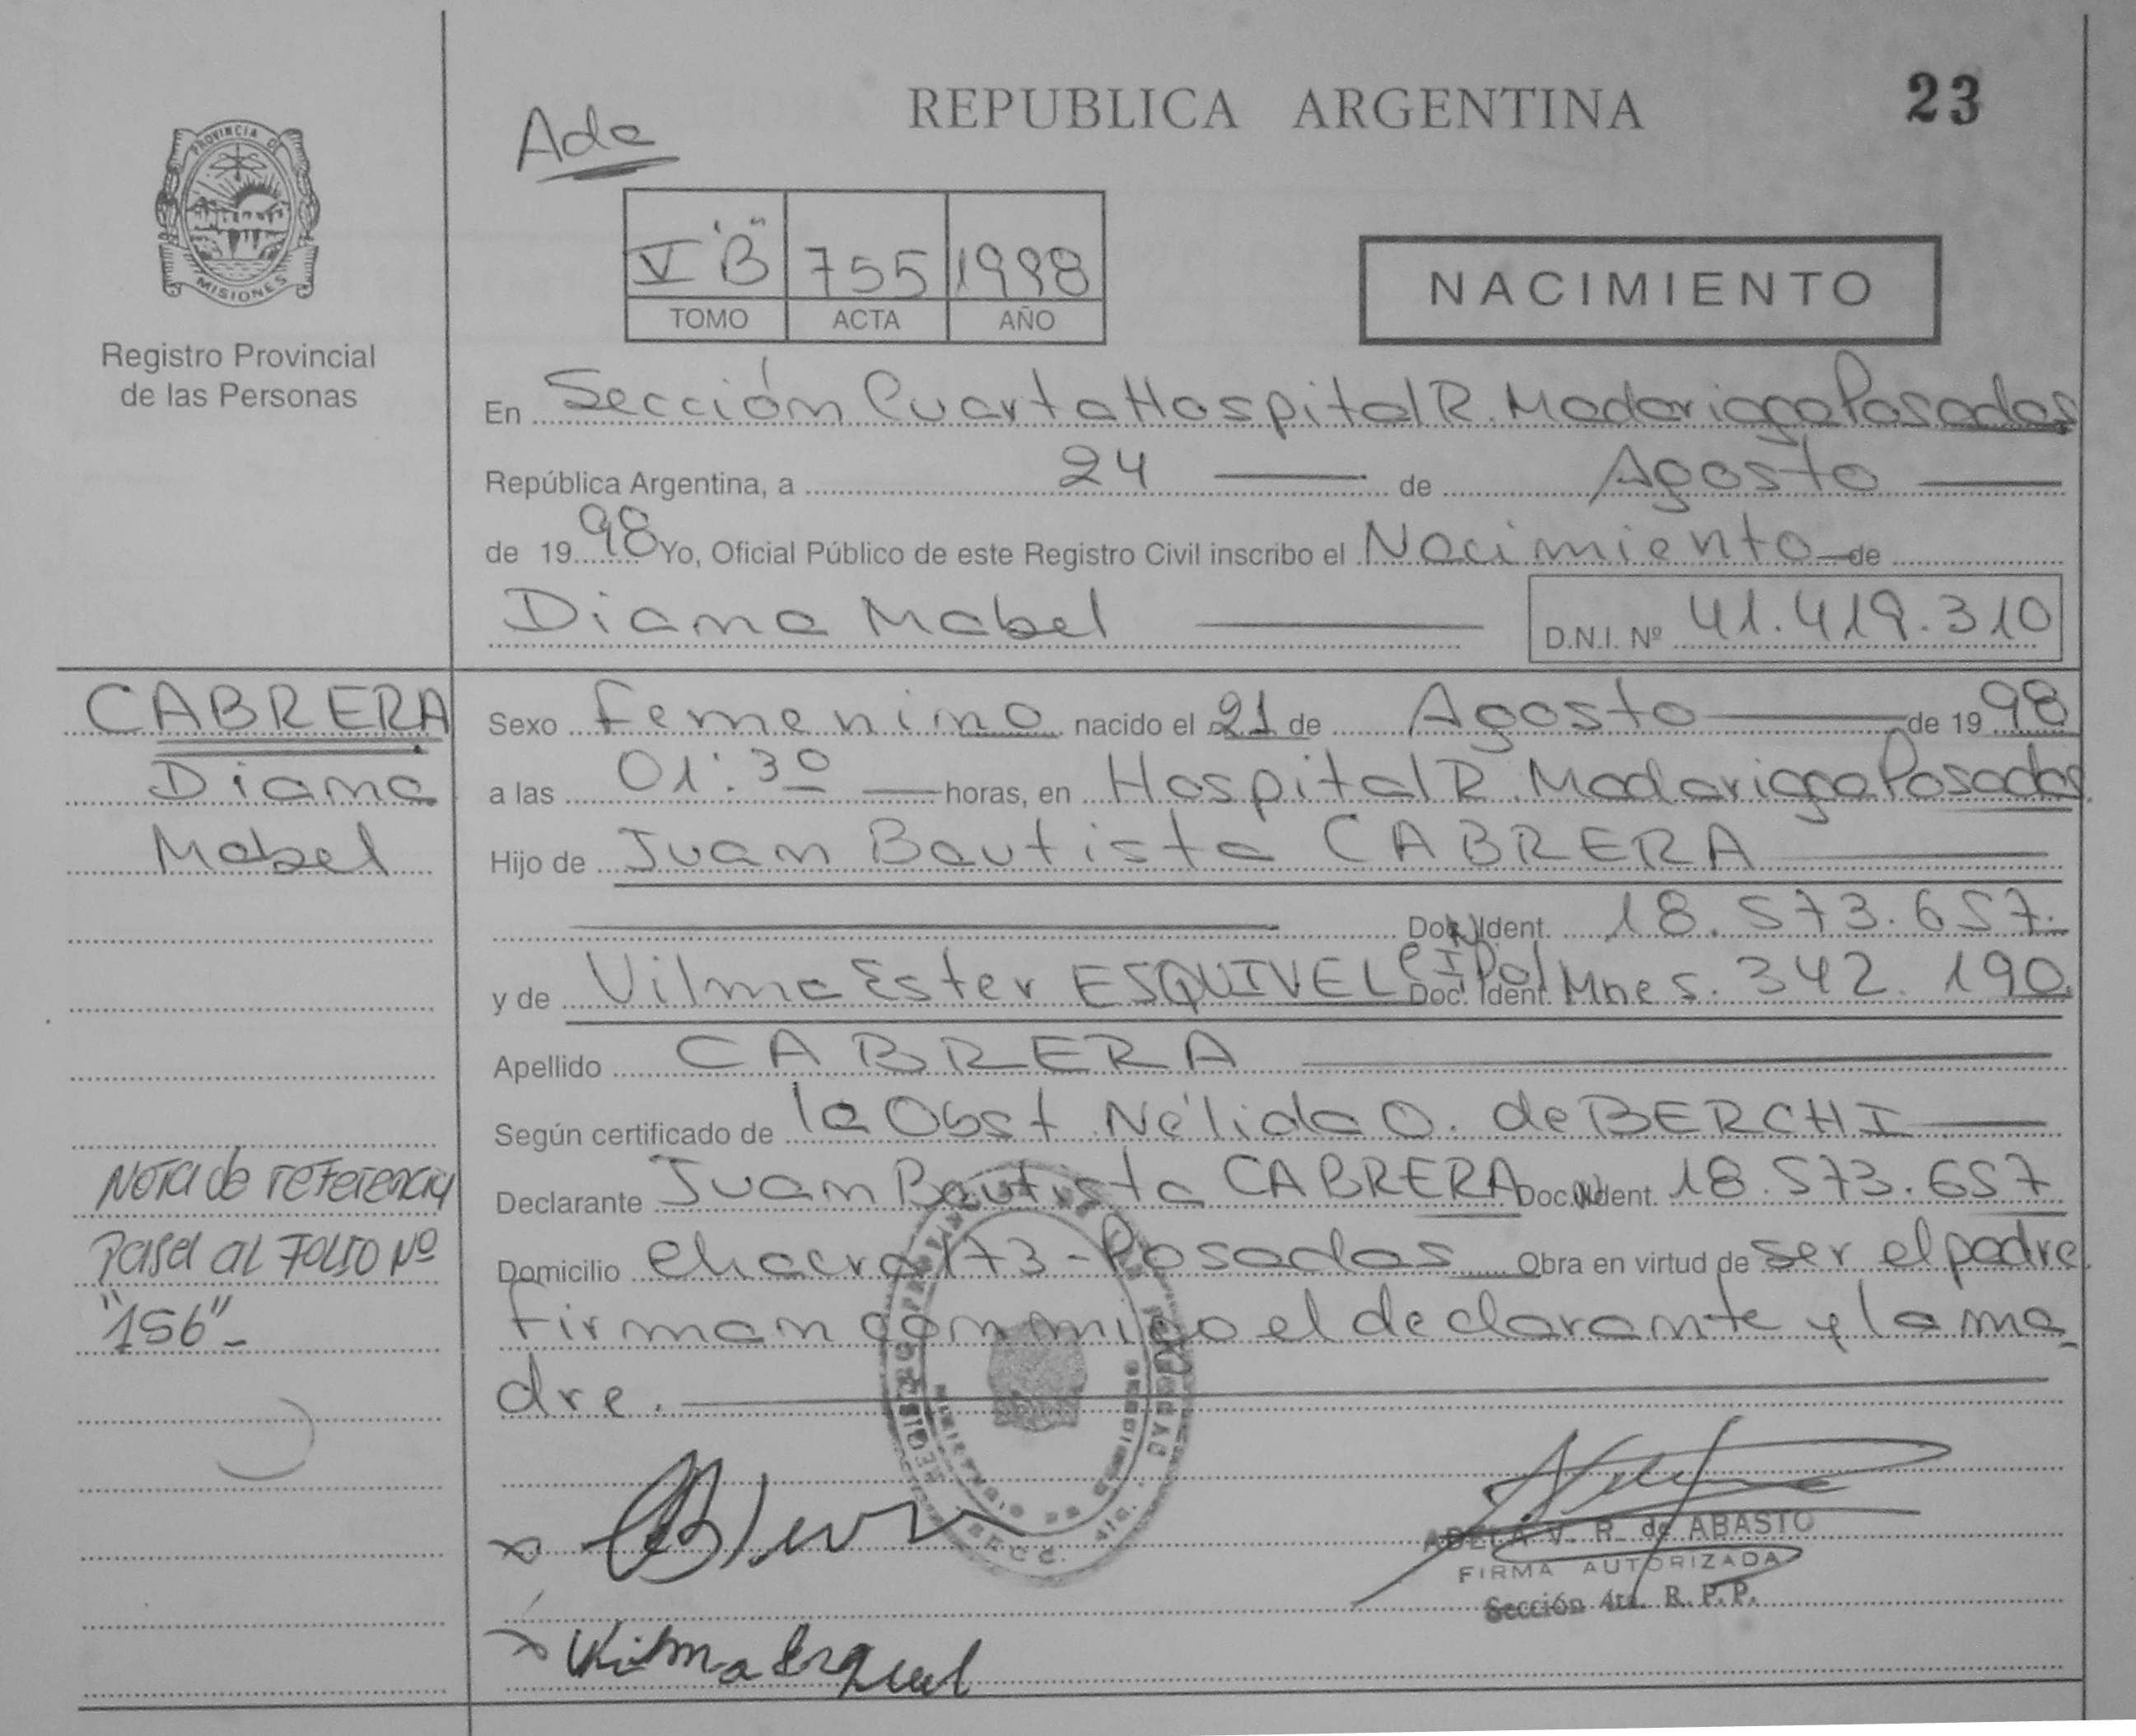 REPUBLICA ARGENTINA
23
Ade
PROVINCIA DE
MISIONES
Registro Provincial
de las Personas
V "B" 755 1998
TOMO ACTA AÑO
NACIMIENTO
En Sección Cuarta Hospital R. Madariaga Posadas
República Argentina, a 24 de Agosto
de 1998 Yo, Oficial Público de este Registro Civil inscribo el Nacimiento de
Diana Mabel D.N.I. Nº 41.419.310
CABRERA
Diana
Mabel
Sexo femenino nacido el 21 de Agosto de 1998
a las 01:30 horas, en Hospital R. Madariaga Posadas
Hijo de Juan Bautista CABRERA
Doc. Ident. 18.573.657.
y de Vilma Ester ESQUIVEL CI Pol Doc. Ident. Mnes. 342.190.
Apellido CABRERA
Según certificado de la Obst. Nélida O. de BERCHI
Declarante Juan Bautista CABRERA Doc. Ident. 18.573.657
Domicilio chacra 173 - Posadas Obra en virtud de ser el padre
firman conmigo el declarante y la ma
dre.
Nota de referencia
Pasa al FOLIO Nº
"156"-
ADELA V. R. de ABASTO
FIRMA AUTORIZADA
Sección 4ta. R. P. P.
Vilma Esquivel